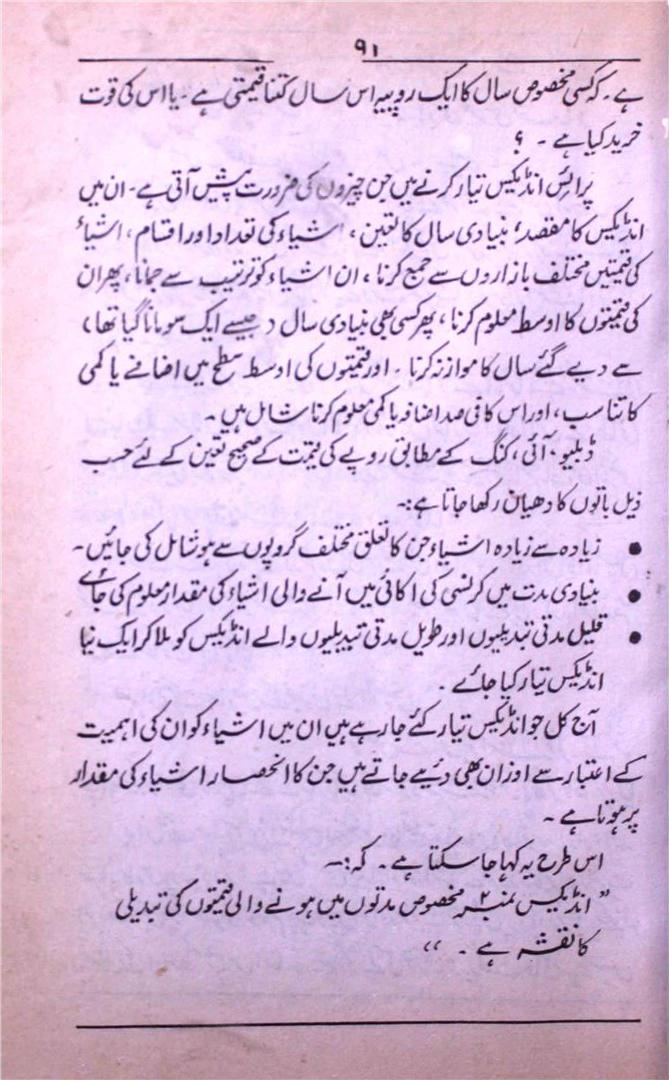 ۹۱
ہے۔ کہ کسی مخصوص سال کا ایک روپیہ اس سال کتنا قیمتی ہے۔ یا اس کی قوت
خرید کیا ہے ۔ ؟
پرائس انڈیکس تیار کرنے میں جن چیزوں کی ضرورت پیش آتی ہے۔ ان میں
انڈیکس کا مقصد، بنیادی سال کا تعین ، اشیاء کی تعداد اور اقسام، اشیاء
کی قیمتیں مختلف بازاروں سے جمع کرنا ، ان اشیاء کو ترتیب سے جمانا، پھر ان
کی قیمتوں کا اوسط معلوم کرنا، پھر کسی بھی بنیادی سال (جیسے ایک سو مانا گیا تھا)
سے دیے گئے سال کا موازنہ کرنا ۔ اور قیمتوں کی اوسط سطح میں اضافے یا کمی
کا تناسب، اور اس کا فی صد اضافہ یا کمی معلوم کرنا شامل ہیں ۔
ڈبلیو۔ آئی، کنگ کے مطابق روپے کی قیمت کے صحیح تعین کے لئے حسب
ذیل باتوں کا دھیان رکھا جاتا ہے:۔
● زیادہ سے زیادہ اشیاء جن کا تعلق مختلف گروپوں سے ہو شامل کی جائیں۔
● بنیادی مدت میں کرنسی کی اکائی میں آنے والی اشیاء کی مقدار معلوم کی جائے
● قلیل مدتی تبدیلیوں اور طویل مدتی تبدیلیوں والے انڈیکس کو ملا کر ایک نیا
انڈیکس تیار کیا جائے ۔
آج کل جو انڈیکس تیار کئے جا رہے ہیں ان میں اشیاء کو ان کی اہمیت
کے اعتبار سے اوزان بھی دئیے جاتے ہیں جن کا انحصار اشیاء کی مقدار
پر ہوتا ہے ۔
اس طرح یہ کہا جا سکتا ہے ۔ کہ:۔
” انڈیکس نمبر مخصوص مدتوں میں ہونے والی قیمتوں کی تبدیلی
کا نقشہ ہے ۔ “